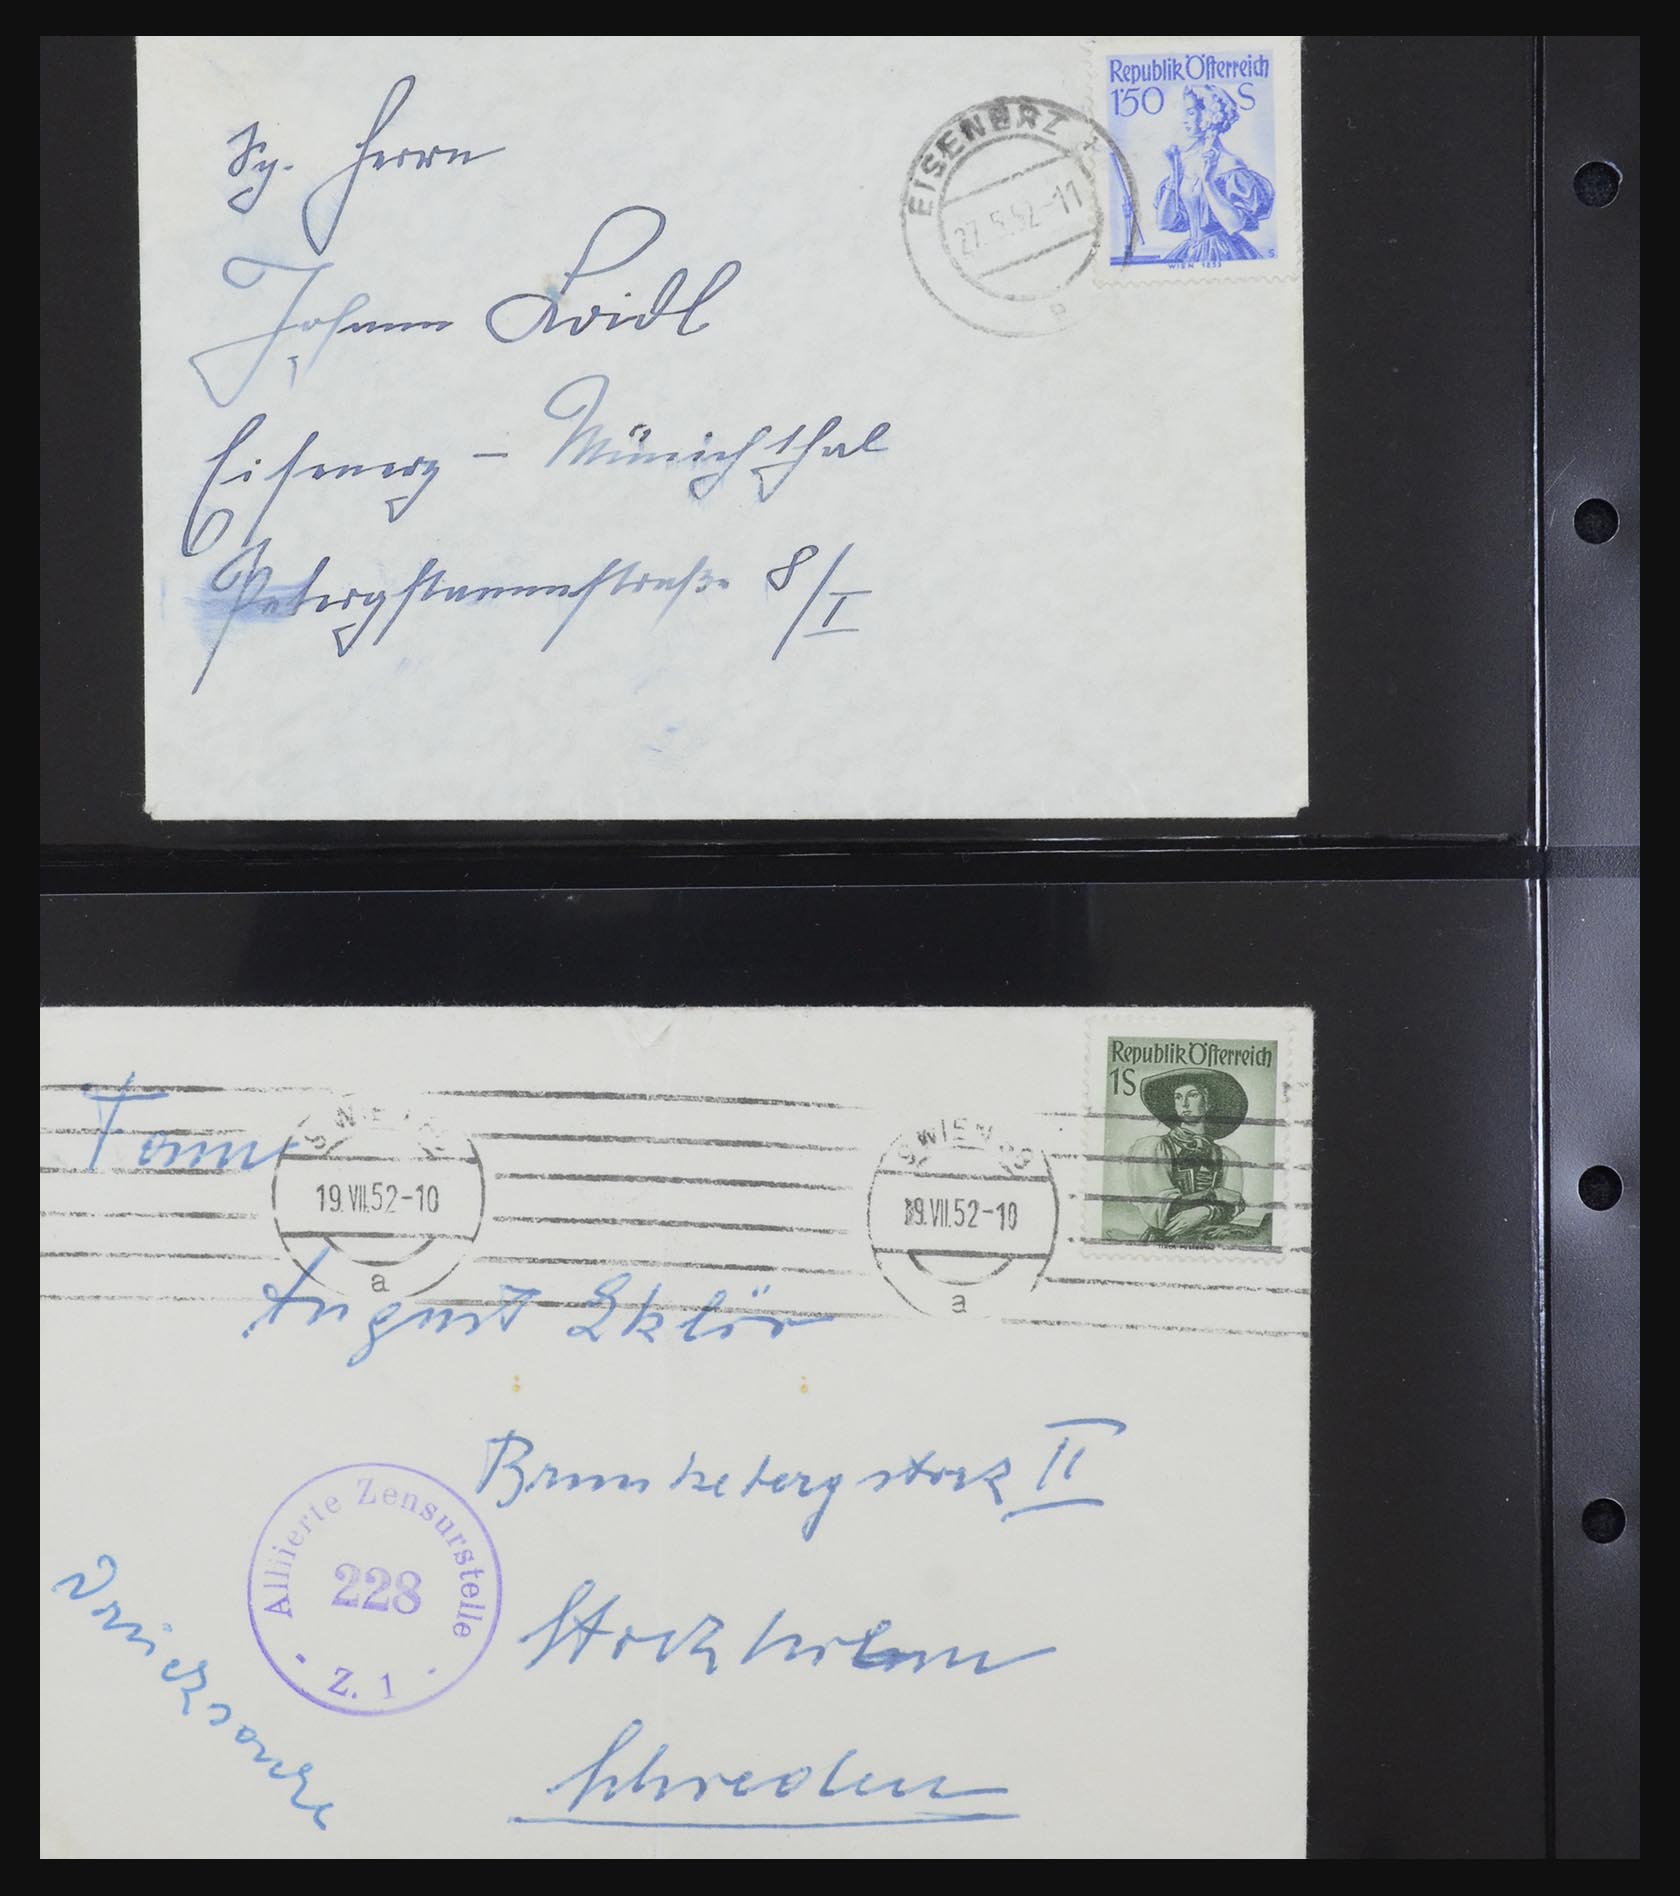 Republik Österreich
1'50 S
EISENERZ
27.5.52-11
WIEN 1853
Herrn
Johann Loidl
Eisenerz - Münichthal
8/I
Republik Österreich
1S
WIEN
19.VII.52-10
a
WIEN
19.VII.52-10
a
August
II
Alliierte Zensurstelle
228
Z. 1
Stockholm
Schweden
Drucksache